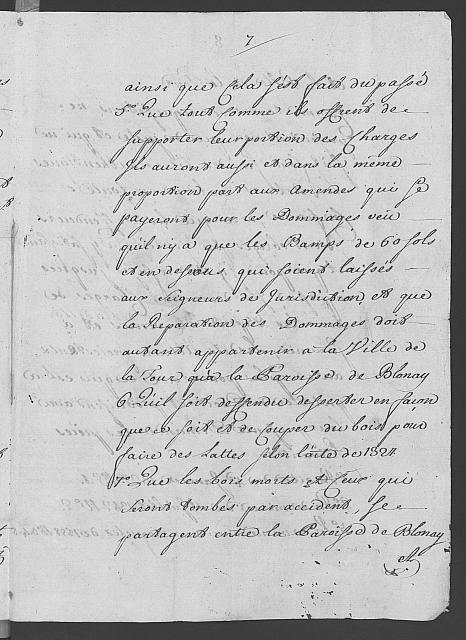 7
ainsi que Cela s'est fait du passé
5.º Que tout Comme ils offrent de
supporter leur portion des Charges
Ils auront aussi et dans la même
proportion part aux Amendes qui se
payeront pour les Dommages veu
qu'il n'y a que les Bamps de 60 sols
et en dessous qui soient laissés
aux Seigneurs de Jurisdiction et que
la Reparation des Dommages doit
autant appartenir à la Ville de
la Tour qu'à la Paroisse de Blonay
6. Qu'il soit deffendu desserter en façon
que ce soit et de Couper du bois pour
faire des Lattes selon l'acte de 1524
7.º Que les bois morts et Ceux qui
seront tombés par accident, se
partagent entre la Paroisse de Blonay
et